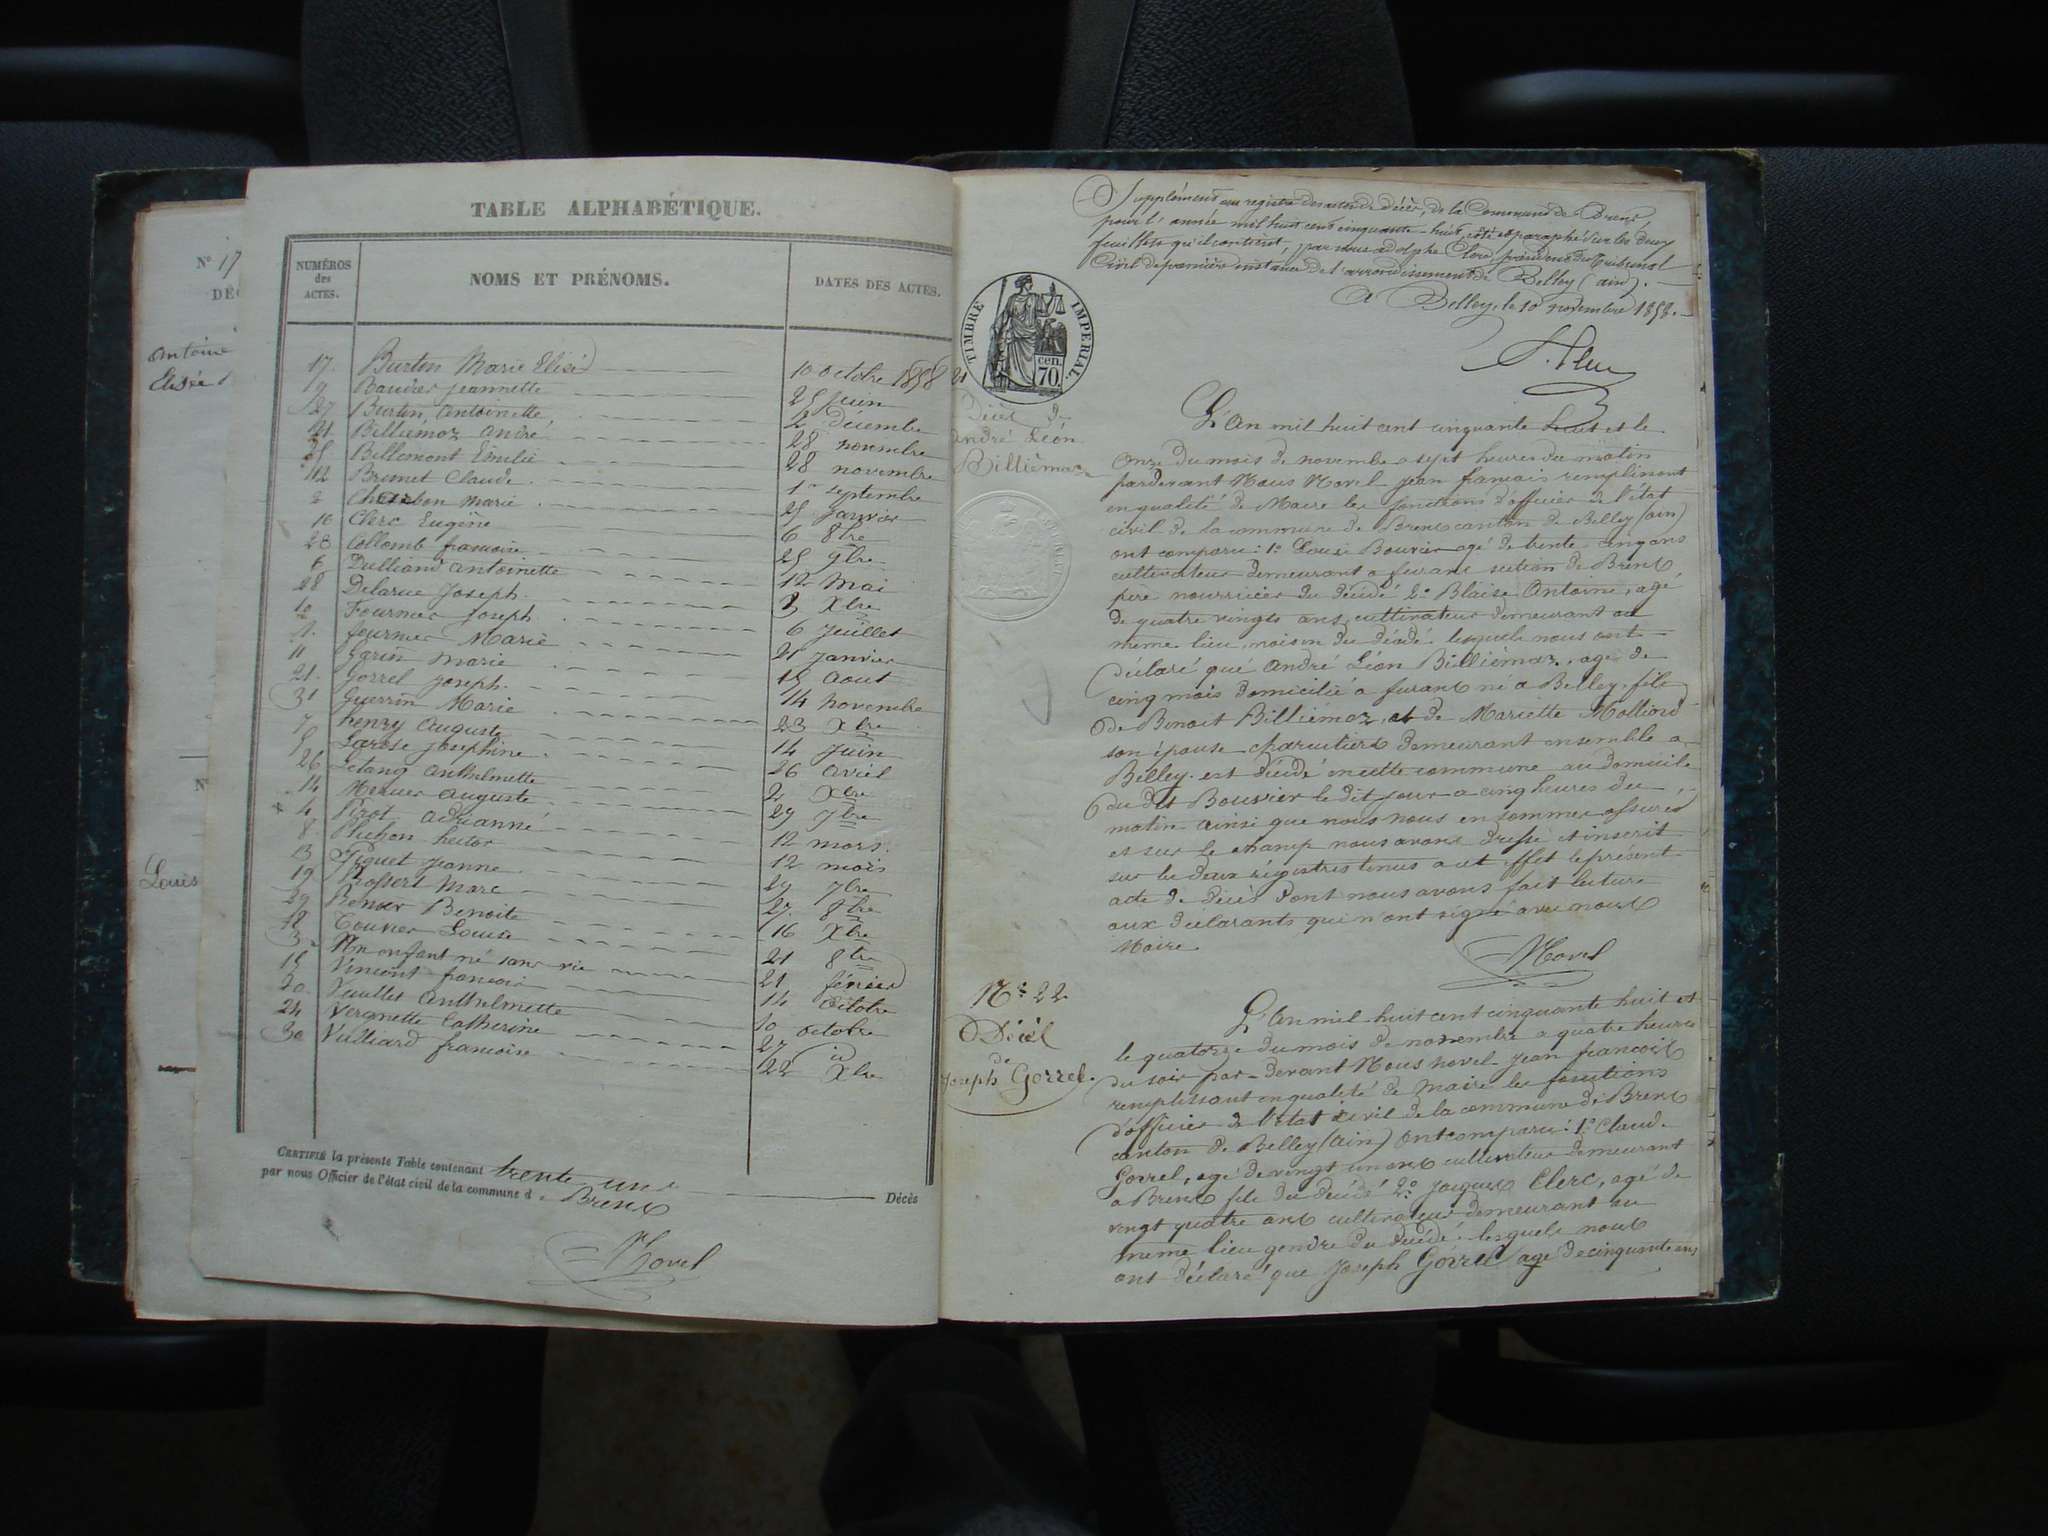 N° 17
DÉC
Antoine
Elisée
Louis
TABLE ALPHABÉTIQUE.
NUMÉROS des ACTES. NOMS ET PRÉNOMS. DATES DES ACTES.
17. Burtin Marie Elisé 10 octobre 1858
9 Baudrer jeannette 25 juin
27 Burtin Antoinette 2 décembre
Billiémoz André 28 novembre
25 Billemont Emilie 28 novembre
12 Brunet Claude 1er septembre
2 Marie 25 Janvier
16 Clerc Eugène 6 8bre
23 Collomb francoise 25 9bre
6 Dulliand antoinette 12 Mai
28 Delarue Joseph. 3 Xbre
10 Fournier Joseph 6 Juillet
1. fournier Marie 21 Janvier
11 Garin Marie 15 Aout
21. Gorrel Joseph. 14 novembre
31 Guerrin Marie 23 Xbre
7 henry Auguste 14 Juin
5 Larose Josephine 26 Avril
26 Letang Anthelmette 2 Xbre
14 Mercier Auguste 29 7bre
4 Pirot Adrianne 12 mars.
8 Pluchon hector 12 mois
13 Piguet Jeanne 29 7bre
19 Rossert Marc 27. 8bre
29 Renox Benoite 16 Xbre
18 Touvier Louise 21 8bre
3 Un enfant né sans vie 21 février
15 Vincent francois 14 octobre
20 Vuillet Anthelmette 10 octobre
24 Vergnette Catherine 27 id
30 Vulliard francoise 22 Xbre
CERTIFIÉ la présente Table contenant trente un Décès
par nous Officier de l'état civil de la commune de Brens
Novel
Supplément au registre des actes de décès, de la Commune de Brens
pour l'année mil huit cent cinquante-huit, coté et paraphé sur les deux
feuillets qu'il contient, par nous adolphe Clerc, président du Tribunal
Civil de première instance de l'arrondissement de Belley (ain).
A Belley, le 10 novembre 1858.
TIMBRE IMPERIAL.
cen. 70.
21
Décès de
André Léon
Billiémoz
L'An mil huit cent cinquante huit et le
onze du mois de novembre a sept heures du matin
pardevant Nous Novel Jean francois remplissant
en qualité de Maire les fonctions d'officier de l'état
civil de la commune de Brens canton de Belley (ain)
ont comparu: 1° Louis Bouvier agé de trente cinq ans
cultivateur demeurant a furans section de Brens
père nourricier du décédé 2° Blaise Antoine, agé
de quatre vingts ans cultivateur demeurant au
même lieu, voisin du décédé lesquels nous ont
déclaré que André Léon Billiémoz, agé de
cinq mois domicilié a furans né a Belley, fils
de Benoit Billiémoz, et de Mariette Molliond
son épouse charcutiers demeurant ensemble a
Belley. est décédé en cette commune au domicile
du dit Bouvier le dit jour a cinq heures du
matin ainsi que nous nous en sommes assurés
et sur le champ nous avons dressé et inscrit
sur les deux régistres tenus a cet effet le présent
acte de décès dont nous avons fait lecture
aux déclarants qui n'ont signé avec nous
Maire.
Novel
N° 22
Décès
de
Joseph Gorrel.
L'An mil huit cent cinquante huit et
le quatorze du mois de novembre a quatre heures
du soir par-devant Nous Novel Jean francois
remplissant en qualité de Maire les fonctions
d'officier de l'état civil de la commune de Brens
canton de Belley (Ain) ont comparu: 1° Claude
Gorrel, agé de vingt un ans cultivateur demeurant
a Brens fils du décédé 2° Jacques Clerc, agé de
vingt quatre ans cultivateur demeurant au
même lieu gendre du décédé. lesquels nous
ont déclaré que Joseph Gorrel agé de cinquante ans